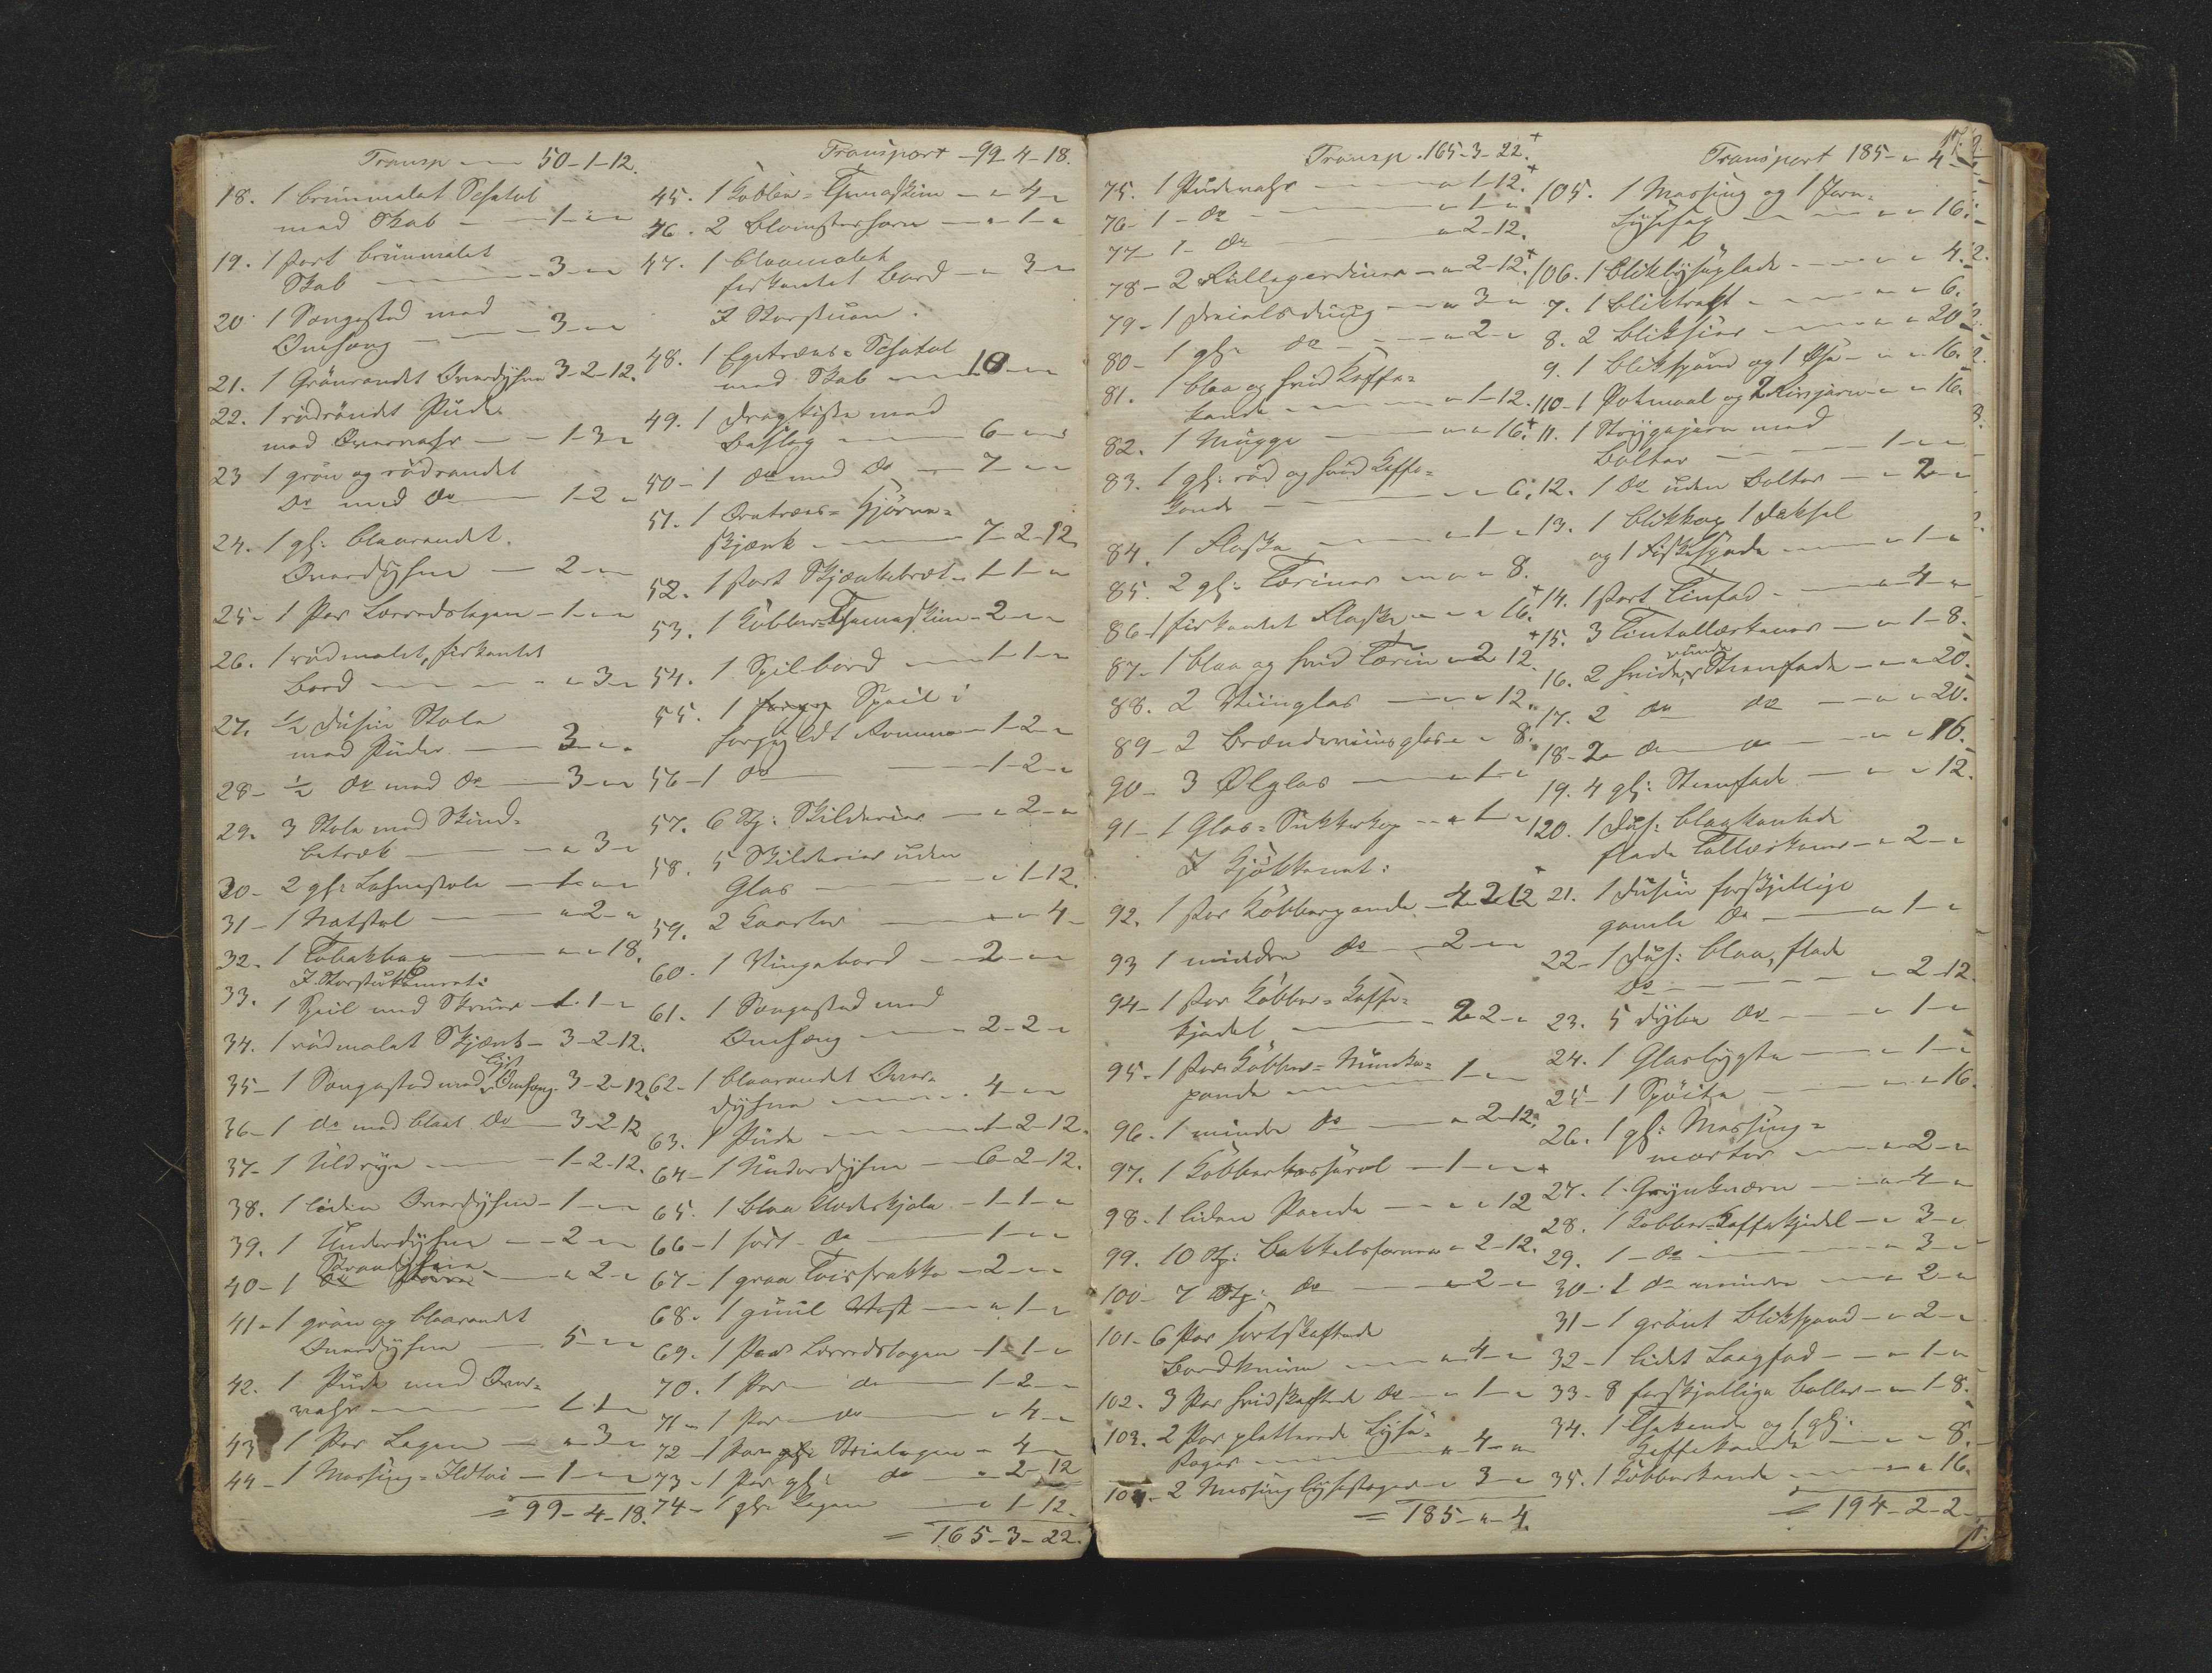 Transp — 50-1-12.
18. 1 brunmalet Schatol
med Skab — 1 - " - "
19. 1 stort brunmalet
Skab — 3 - " - "
20 1 Sengested med
Omhæng — 3 - " - "
21. 1 Grönrandet Overdyhne 3-2-12.
22. 1 rödrandet Pude
med Overvahr — 1-3-"
23 1 grön og rödrandet
Do med Do — 1-2-"
24. 1 gl: blaarandet
Overdyhne — 2 - " - "
25- 1 Par Lærredslagen - 1 - " - "
26. 1 rödmalet, firkantet
Bord — " 3 - "
27. ½ dusin Stole
med Puder — 3 - " - "
28- ½ do med do — 3 - " - "
29. 3 Stole med Skind-
betræk — " 3 - "
30- 2 gl: Lehnestole — 1 - " - "
31- 1 Natstol — " 2 - "
32. 1 Tobakkop — " - " 18.
I Storstukamret:
33. 1 Speil med Skruer - 1-1-"
34. 1 rödmalet Skjænk - 3-2-12.
35- 1 Sengested med lyst Omhæng 3-2-12.
36- 1 do med blaat Do — 3-2-12
37- 1 Uldrye — 1-2-12.
38. 1 liden Overdyhne - 1 - " - "
39. 1 Underdyhne — 2 - " - "
40- 1 — " 2 - "
41- 1 grön og blaarandet
Overdyhne — 5 - " - "
42. 1 Pude med Over-
vahr — 1-1-"
43 1 Par Lagen — " 3 - "
44- 1 Messing-Ildtöi — 1 - " - "
= 99-4-18.
Transport - 99-4-18.
45. 1 Kobber-Themaskine — " 4 - "
46. 2 Blomsterhorn — " 1 - "
47. 1 blaamalet
firkantet Bord — " 3 - "
I Storstuen.
48. 1 Egetræes-Schatol
med Skab — 10 - " - "
49. 1 dragkiste med
Beslag — 6 - " - "
50- 1 do med do — 7 - " - "
51. 1 Oretræes-Hjörne-
skjænk — 7-2-12
52. 1 stort Skjænkebræt - 1-1-"
53. 1 Kobber-Themaskine - 2 - " - "
54. 1 Spilbord — 1-1-"
55. 1 Speil i
forgyldt Ramme — 1-2-"
56- 1 do — 1-2-"
57. 6 St: Skilderier — " 2 - "
58. 5 Skilderier uden
Glas — " 1-12.
59. 2 — " 4 -
60. 1 Vingebord — 2 - " - "
61. 1 Sengested med
Omhæng — 2-2-"
62- 1 blaarandet Over-
dyhne — 4 - " - "
63. 1 Pude — 1-2-12.
64- 1 Underdyhne — 6-2-12.
65. 1 blaa Klædeskjole - 1-1-"
66- 1 sort do — 1 - " - "
67- 1 graa Toiesfrakke - 2 - " - "
68. 1 guul Vest — " 1 - "
69. 1 Par Lærredslagen - 1-1-"
70. 1 Par do — 1-2-"
71- 1 Par do — " 4 - "
72- 1 Par Strielagen - " 4 - "
73- 1 Par gl: do — " 2-12
74- 1 gl: Lagen — " 1-12.
= 165-3-22.
Transp. 165-3-22.
75. 1 Pudevahr — " 1-12.
76- 1 - do — " 1 - "
77- 1 - do — " 2-12.
78- 2 Rullegardiner — " 2-12.
79- 1 dreielsdug — " 3 - "
80- 1 gl: do — " 2 - "
81. 1 blaa og hvid Kaffe-
kande — " 1-12.
82. 1 Mugge — " - " 16.
83. 1 gl: röd og hvid Kaffe-
kande — " - " 6.
84. 1 Flaske — " 1 - "
85. 2 gl: Tæriner — " - " 8.
86- 1 firkantet Flaske — " - " 16.
87- 1 blaa og hvid Tærin - " 2 12.
88. 2 Viinglas — " - " 12.
89- 2 Brændeviinsglas - " - " 8.
90- 3 Ølglas — " 1 - "
91- 1 Glas-Sukkerkop — " 1 - "
I Kjökkenet:
92. 1 stor Kobberpande - 4-2-12
93 1 mindre do — 2 - " - "
94- 1 stor Kobber-Kaffe-
kjedel — 2-2-"
95- 1 stor Kobber-Munke-
pande — 1 - " - "
96. 1 mindre do — " 2-12.
97. 1 Kobberkasserol - 1 - " - "
98- 1 liden Pande — " - " 12
99. 10 St: Bakkelsformer " 2-12.
100- 7 St: do — " 2 - "
101- 6 Par sortskaftede
Bordknive — " 4 - "
102. 3 Par hvidskaftede do — " 1 - "
103. 2 Par pletterede Lyse-
stager — " 4 - "
104. 2 Messing lysestager - " 3 - "
= 185 - " - 4.
Transport 185 - " - 4 -
105. 1 Messing og 1 Jern-
Lysesax — " - " 16.
106. 1 bliklyseplade — " - " 4.
7. 1 bliktragt — " - " 6.
8. 2 bliksier — " - " 20
9. 1 blikspand og 1 Øse - " - " 16.
110- 1 Potmaal og 2 Rivjern - " - " 16.
11. 1 Strygejern med
Bolter — 1 - " - "
12. 1 do uden Bolter — " 2 - "
13. 1 blikkop 1 deksel
og 1 Fiskespade — " 1 - "
14. 1 stort Tinfad — " 4 - "
15. 3 Tintallerkener — " 1-8.
16. 2 hvide, runde Steenfade — " - " 20.
17. 2 do do — " - " 20.
18- 2 do do — " - " 16.
19. 4 gl: Steenfade — " - " 12.
120. 1 dus: blaakantede
flade Tallerkener - " 2 - "
21. 1 dusin forskjellige
gamle do — " 1 - "
22- 1 dus: blaa, flade
do — " 2-12.
23. 5 dybe do — " 1 - "
24. 1 Glaslygte — " 1 - "
25- 1 Spöite — " - " 16.
26. 1 gl: Messing-
morter — " 2 - "
27. 1 Grynkværn — " 4 - "
28. 1 Kobber-Kaffekjedel — " 3 - "
29. 1 - do — " 3 - "
30- 1 do mindre — " 2 - "
31- 1 grönt Blikspand - " 2 - "
32- 1 lidet Laagfad — " 1 - "
33- 8 forskjellige boller - " 1-8.
34. 1 Thekande og 1 gl:
Kaffekande — " - " 8.
35. 1 Kobberkande — " - " 16.
= 194-2-2